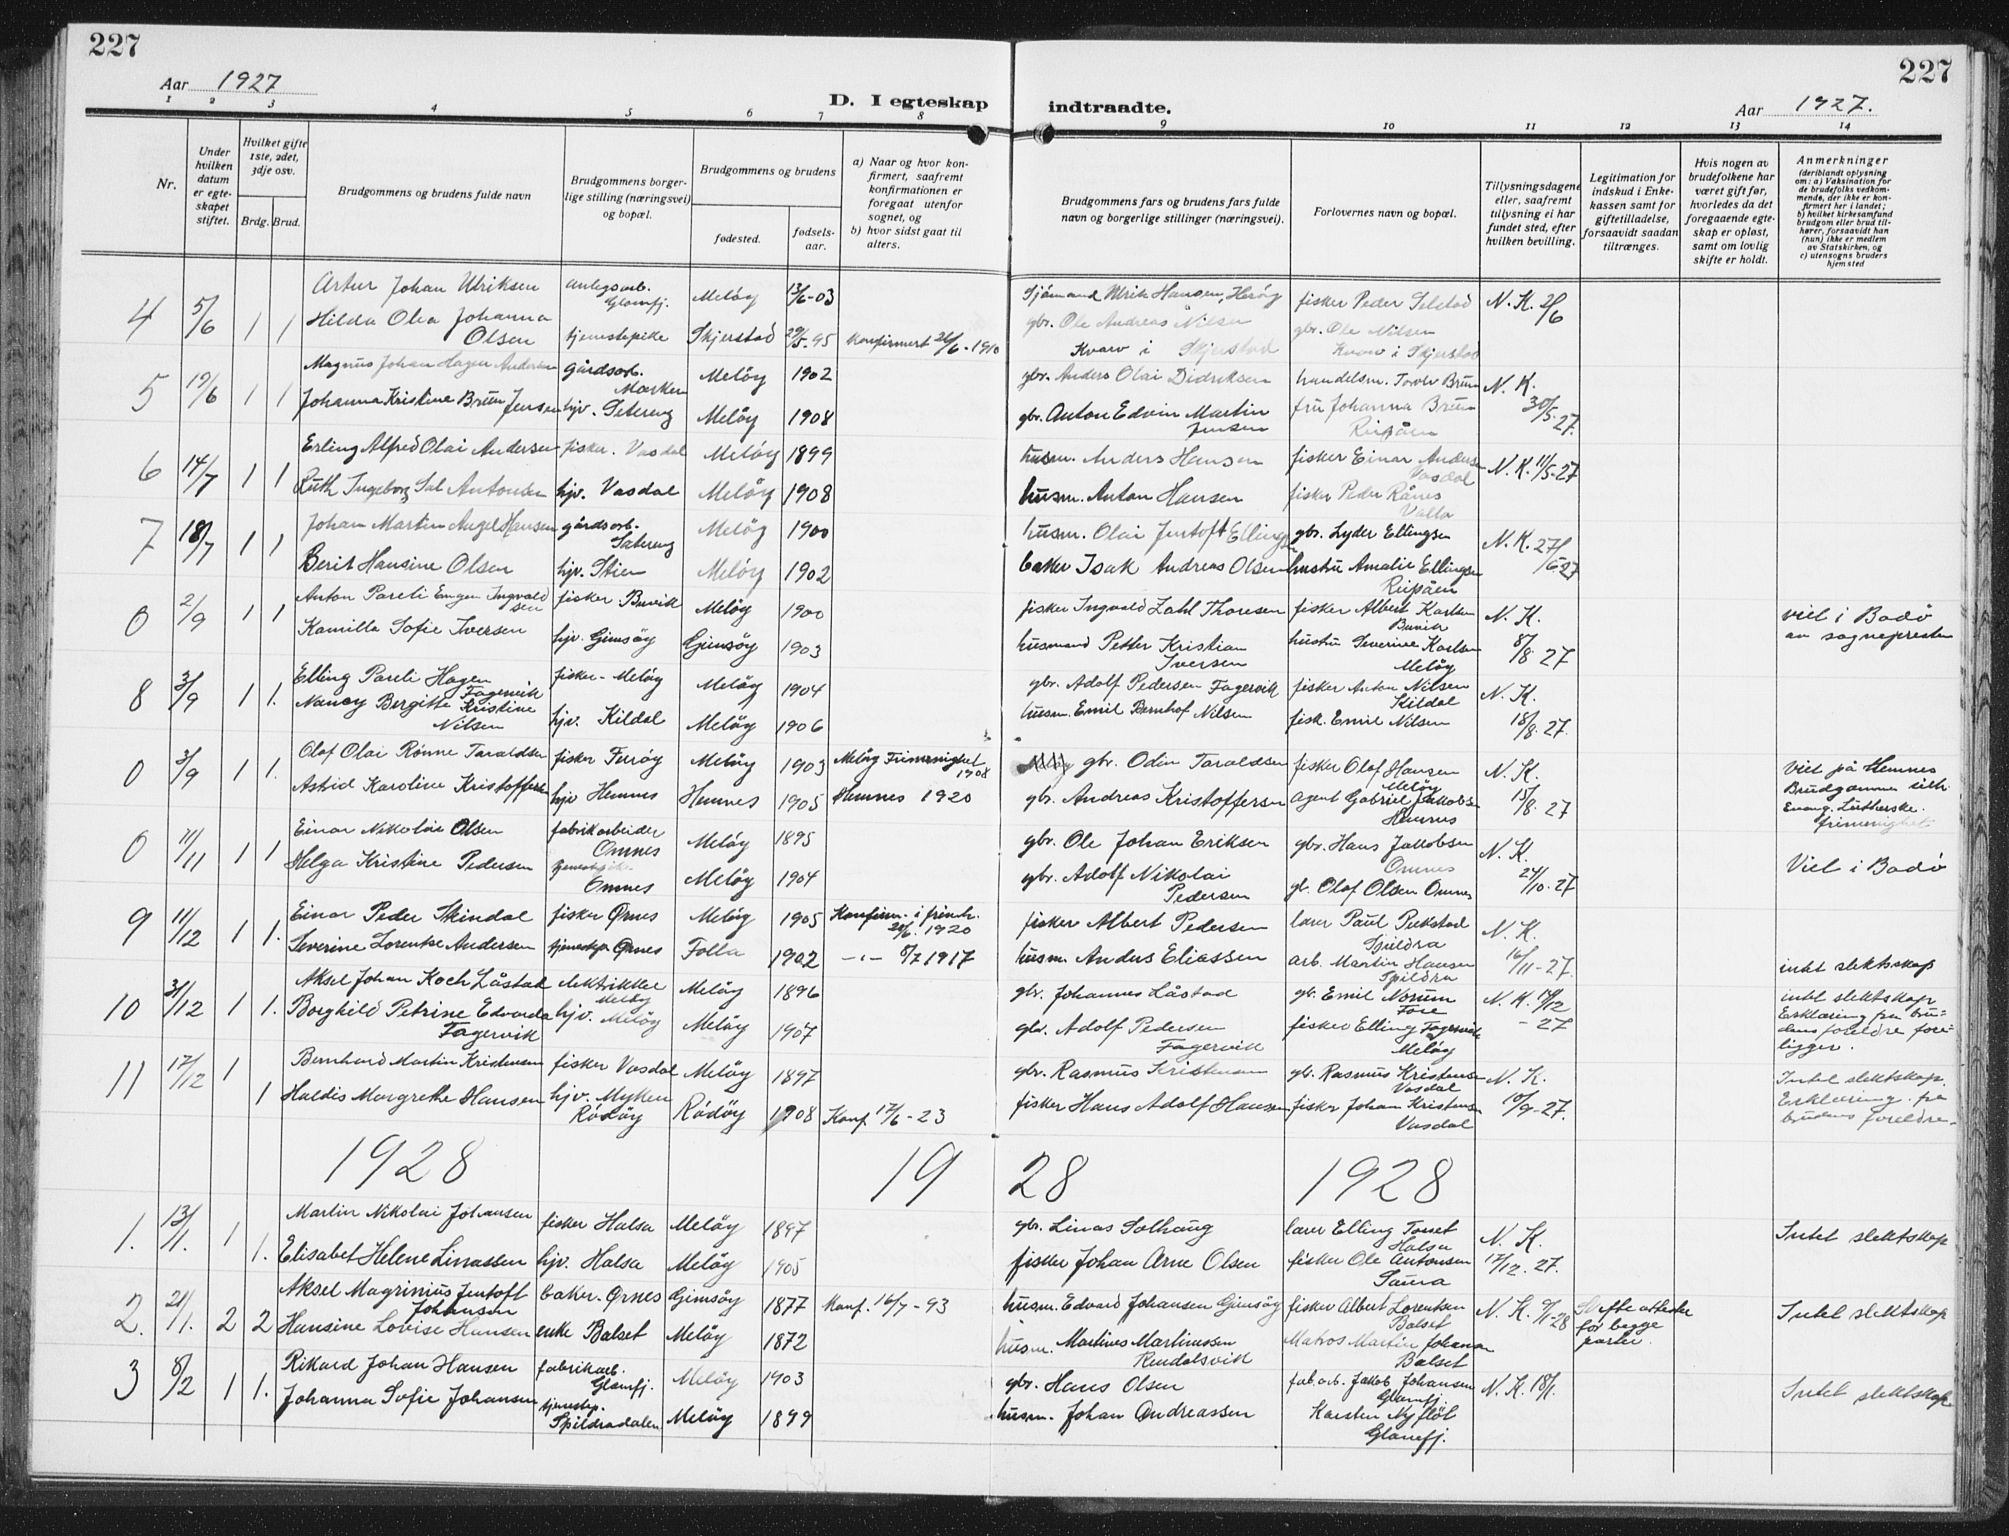 227
227
Aar 1927
D. I egteskap indtraadte.
Aar 1927.
1 2 3 4 5 6 7 8 9 10 11 12 13 14
Nr.
Under hvilken datum er egteskapet stiftet.
Hvilket gifte 1ste, 2det, 3dje osv.
Brdg. Brud.
Brudgommens og brudens fulde navn
Brudgommens borgerlige stilling (næringsvei) og bopæl.
Brudgommens og brudens
fødested.
fødselsaar.
a) Naar og hvor konfirmert, saafremt konfirmationen er foregaat utenfor sognet, og
b) hvor sidst gaat til alters.
Brudgommens fars og brudens fars fulde navn og borgerlige stillinger (næringsvei).
Forlovernes navn og bopæl.
Tillysningsdagene eller, saafremt tillysning ei har fundet sted, efter hvilken bevilling.
Legitimation for indskud i Enkekassen samt for giftetilladelse, forsaavidt saadan tiltrænges.
Hvis nogen av brudefolkene har været gift før, hvorledes da det foregaaende egteskap er opløst, samt om lovlig skifte er holdt.
Anmerkninger
(deriblandt oplysning om: a) Vaksination for de brudefolks vedkommende, der ikke er konfirmert her i landet; b) hvilket kirkesamfund brudgom eller brud tilhører, forsaavidt han (hun) ikke er medlem av Statskirken, og c) utensogns bruders hjemsted
4 5/6 1 1 Artur Johan Ulriksen anlegsarb. Glomfj. Meløy 13/6-03 Sjömand Ulrik Hansen, Herøy fisker Peder Selstad N. K. 2/6
Hilda Olea Johanna Olsen tjenestepike Skjerstad 29/5-95 Konfirmert 26/6-1910 gbr. Ole Andreas Nilsen Kvarv i Skjerstad gbr. Ole Nilsen Kvarv i Skjerstad
5 19/6 1 1 Magnus Johan Hagen Andersen gårdsarb. Marken Meløy 1902 gbr. Anders Olai Didriksen handelsm. Torolv Bruun N. K. 30/5-27.
Johanna Kristine Bruun Jensen hjv. Setereng Meløy 1908 gbr. Anton Edvin Martin Jensen fru Johanna Bruun Reipåen
6 14/7 1 1 Erling Alfred Olai Andersen fisker. Vasdal Meløy 1899 husm. Anders Hansen fisker Einar Anders Vasdal N. K. 11/5-27
Ruth Ingeborg Sal Antonsen hjv. Vasdal Meløy 1908 husm. Anton Hansen fisker Peder Rånes Valla
7 18/7 1 1 Johan Martin Angel Hansen gårdsarb. Setereng Meløy 1900 husm. Olai Jentoft Ellings gbr. Lyder Ellingsen N. K. 27/6-27
Berit Hansine Olsen hjv. Stien Meløy 1902 baker Isak Andreas Olsen hustru Amalie Ellingsen Reipåen
0 2/9 1 1 Anton Pareli Emgen Ingvaldsen fisker Buvik Meløy 1900 fisker Ingvald Zahl Thoresen fisker Albert Karlsen Buvik N. K. 8/8-27 viet i Bodö av sognepresten
Kamilla Sofie Iversen hjv. Gimsöy Gimsöy 1903 husmand Petter Kristian Iversen hustru Severine Karlsen Meløy
8 3/9 1 1. Elling Pareli Hagen Fagervik fisker - Meløy Meløy 1904 gbr. Adolf Pedersen Fagervik fisker Anton Nilsen Kildal N. K. 18/8-27.
Nancy Bergitte Kristine Nilsen hjv. Kildal Meløy 1906 husm. Emil Bernhof Nilsen fisk. Emil Nilsen
0 3/9 1 1. Olaf Olai Rønne Taraldsen fisker Ferøy Meløy 1903 Meløy Frimenighet 1908 gbr. Odin Taraldsen fisker Olaf Hansen Meløy N. K. 15/8-27 Viet på Hemnes Brudgommen tilh. Evang. Lutherske. frimenighet.
Astrid Karoline Kristoffersen hjv Hemnes Hemnes 1905 Hemnes 1920 gbr. Andreas Kristoffersen agent Gabriel Jakobsen Hemnes
0 11/11 1 1 Einar Nikolai Olsen fabrikarbeider Omnes Meløy 1895 gbr. Ole Johan Eriksen gbr. Hans Jakobsen Omnes N. K. 24/10-27 Viet i Bodö
Helga Kristine Pedersen Omnes Meløy 1904 gbr. Adolf Nikolai Pedersen gb. Olaf Olsen Omnes
9 11/12 1 1. Einar Peder Skindal fisker Ørnes Meløy 1905 Konfirm. i frimh. 20/6. 1920 fisker Albert Pedersen lærer Paul Spildra N. K. 16/11-27.
Severine Lorentse Andersen tjenestep. Ørnes Folla 1902 -"- 8/7 1917 husm. Anders Eliassen arb. Martin Hansen Spildra intet slektskap
10 31/12 1 1. Aksel Johan Koch Låstad elektrikker Meløy Meløy 1896 gbr. Johannes Låstad gb. Emil Norum Fore N. K. 19/12 -27 intet slektskap Erklæring fra brudens foreldre foreligger.
Borghild Petrine Edvarda Fagervik hjv. Meløy Meløy 1907 gbr. Adolf Pedersen Fagervik fisker Elling Fagervik Meløy
11 17/12 1 1 Bernhard Martin Kristensen fisker Vasdal Meløy 1897 gbr. Rasmus Kristensen gb. Rasmus Kristensen Vasdal N. K. 10/9-27. Intet slektskap. Erklæring fra brudens foreldre.
Haldis Margrethe Hansen hjv. Myken Rödöy Rödöy 1908 Konf. 17/6-23 fisker Hans Adolf Hansen fisker Johan Kristensen Vasdal
1928 19 28 1928
1. 13/1. 1 1. Martin Nikolai Johansen fisker Halsa Meløy 1897 gbr. Linas Solhaug lærer Elling Torset Halsa N. K. 17/12. 27. Intet slektskap
Elisabet Helene Linassen hjv. Halsa Meløy 1905 fisker Johan Arne Olsen fisker Ole Antonsen Saura
2. 21/1. 2 2 Aksel Magrinius Jentoft Johansen baker. Ørnes Gimsöy 1877 Konf. 16/7-93 husm. Edvard Johansen Gimsöy fisker Albert Lorentsen Balset N. K. 9/1-28 Skifteattester for begge parter. Intet slektskap
Hansine Lovise Hansen enke Balset Meløy 1872 husm. Martines Martinussen Rendalsvik Matros Martin Johansen Balset
3 8/2 1 1. Rikard Johan Hansen fabrikarb. Glomfj. Meløy 1903 gbr. Hans Olsen fab. arb. Jakob Johansen Glomfj. N. K. 18/1. Intet slektskap
Johanna Sofie Johansen tjenestep. Spildradalen Meløy 1899 husm. Johan Andreassen Karsten Nyfløt Glomfj.